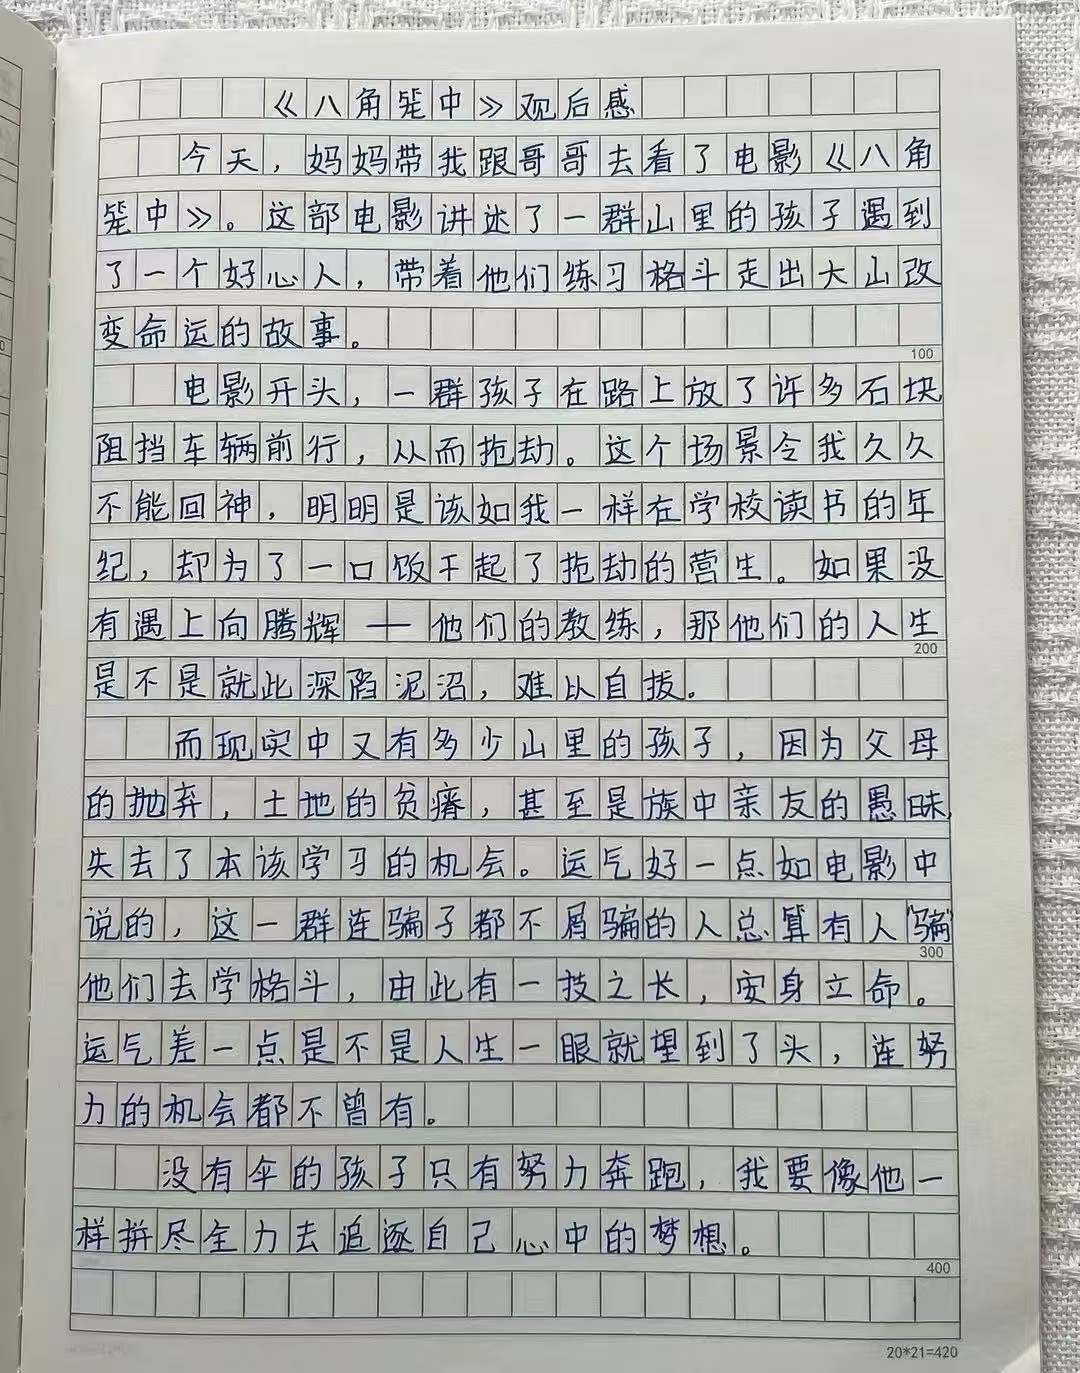 《八角笼中》观后感
今天，妈妈带我跟哥哥去看了电影《八角
笼中》。这部电影讲述了一群山里的孩子遇到
了一个好心人，带着他们练习格斗走出大山改
变命运的故事。
100
电影开头，一群孩子在路上放了许多石块
阻挡车辆前行，从而抢劫。这个场景令我久久
不能回神，明明是该如我一样在学校读书的年
纪，却为了一口饭干起了抢劫的营生。如果没
有遇上向腾辉——他们的教练，那他们的人生
200
是不是就此深陷泥沼，难以自拔。
而现实中又有多少山里的孩子，因为父母
的抛弃，土地的贫瘠，甚至是族中亲友的愚昧，
失去了本该学习的机会。运气好一点如电影中
说的，这一群连骗子都不屑骗的人总算有人“骗”
300
他们去学格斗，由此有一技之长，安身立命。
运气差一点是不是人生一眼就望到了头，连努
力的机会都不曾有。
没有伞的孩子只有努力奔跑，我要像他一
样拼尽全力去追逐自己心中的梦想。
400
20*21=420